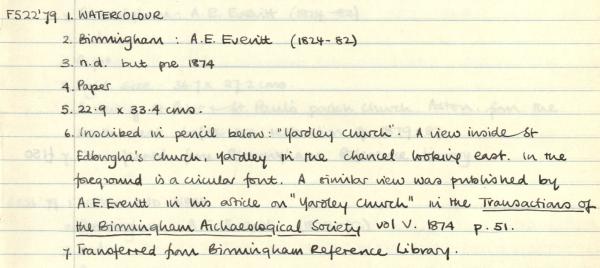 F522'79 1. WATERCOLOUR
2. Birmingham : A.E. Everitt (1824-82)
3. n.d. but pre 1874
4. Paper
5. 22.9 x 33.4 cms.
6. Inscribed in pencil below: "Yardley Church". A view inside St
Edburgha's church, Yardley in the chancel looking east. In the
foreground is a circular font. A similar view was published by
A.E. Everitt in his article on "Yardley Church" in the Transactions of
the Birmingham Archaeological Society vol V. 1874 p. 51.
7. Transferred from Birmingham Reference Library.